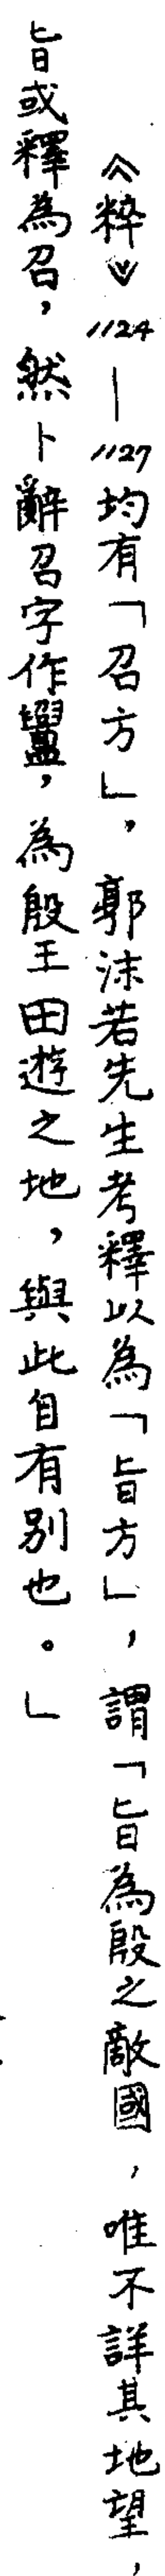 《粹》1124—1127均有「召方」，郭沫若先生考釋以為「旨方」，謂「旨為殷之敵國，唯不詳其地望，
旨或釋為召，然卜辭召字作，為殷王田遊之地，與此自有別也。」